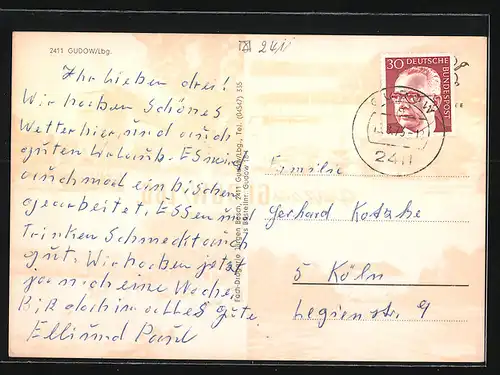 2411 GUDOW/Lbg.
241
Ihr lieben drei!
Wir haben schönes
Wetter hier, und auch
guten Urlaub. ES wird
auch mal ein bischen
gearbeitet. ESSen und
Trinken Schmeckt auch
gut. Wir haben jetzt
noch eine Woche.
BiS dahin alles gute.
Elli und Paul
30 DEUTSCHE BUNDESPOST
GUDOW
2411
Familie
Gerhard Kotzke
5 Köln
Legienstr. 9
2411 Gudow/Lbg., Tel. (04547) 335